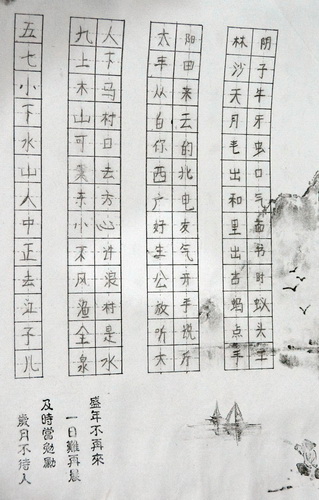 阴子牛牙虫口气面书时蚁头土
林沙天月毛出和里出古蚂点手
阳田来云的北电友气开手说斤
太丰从白你西广好生公放听大
人下马村日去方心浪村是水
九上木山可东小不风渔全泉
五七小下水山人中正去江子儿
盛年不再來
一日難再晨
及時當勉勵
歲月不待人